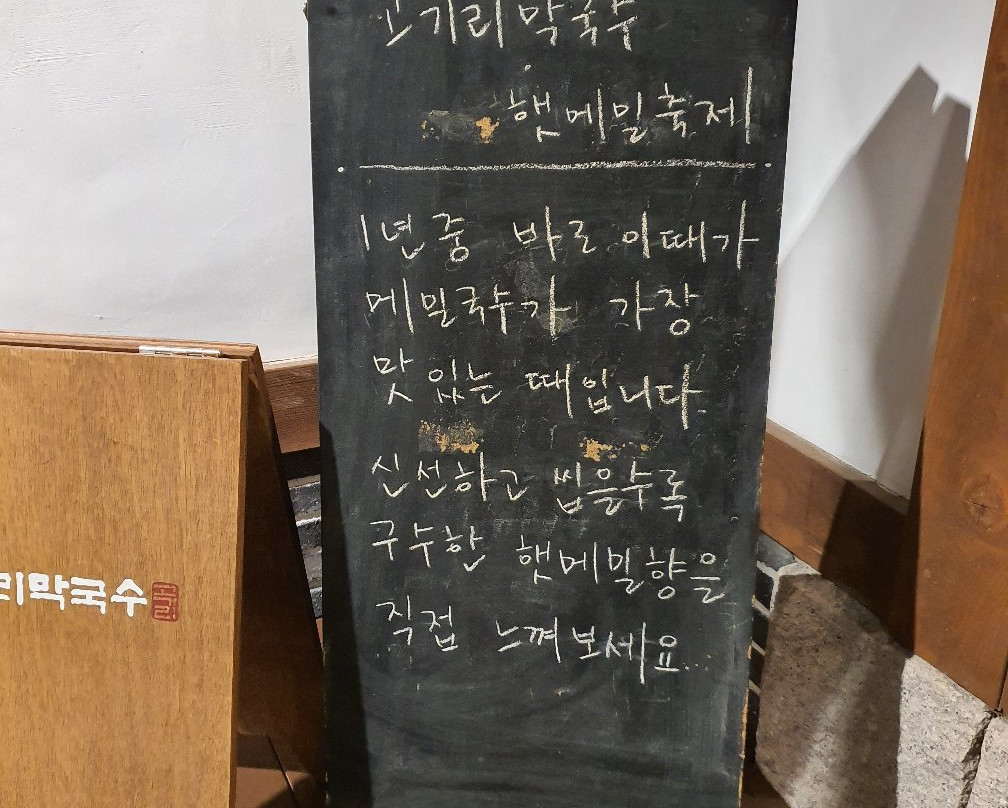 고기리막국수
햇메밀축제
1년중 바로 이때가
메밀국수가 가장
맛있는 때입니다.
신선하고 씹을수록
구수한 햇메밀향을
직접 느껴보세요...
리막국수